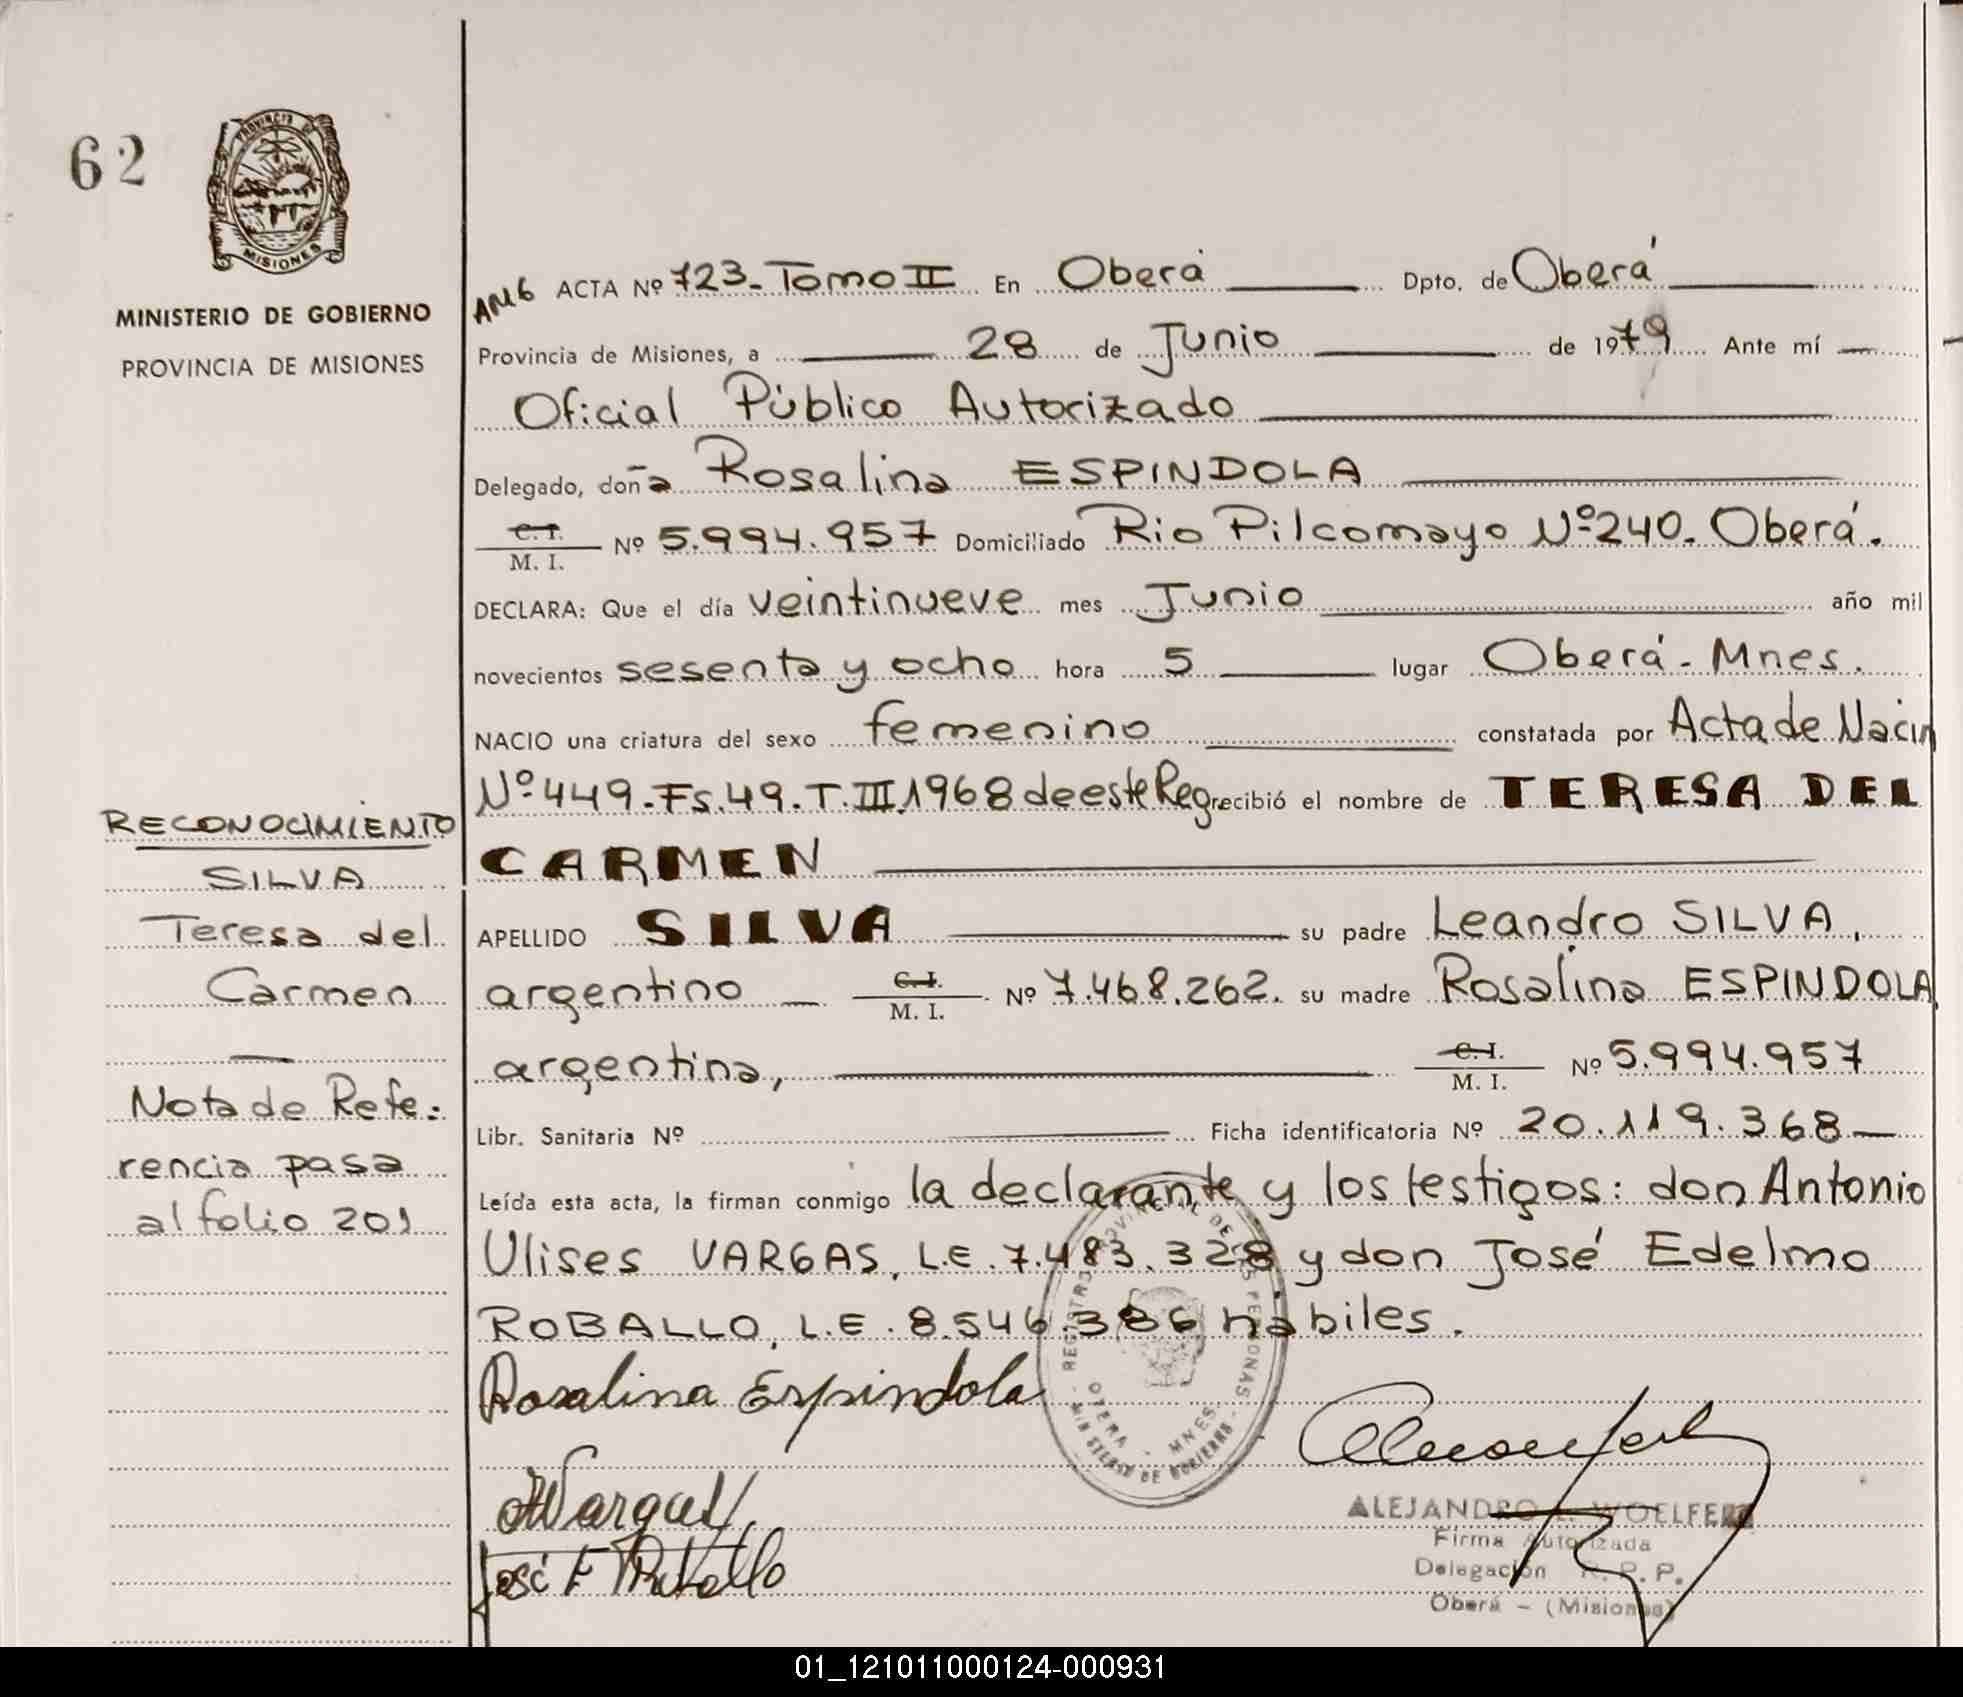 62
PROVINCIA DE
MISIONES
MINISTERIO DE GOBIERNO
PROVINCIA DE MISIONES
RECONOCIMIENTO
SILVA
Teresa del
Carmen
—
Nota de Refe-
rencia pasa
al folio 201
AMG ACTA Nº 723-Tomo II En Oberá Dpto. de Oberá
Provincia de Misiones, a 28 de Junio de 1979 Ante mí —
Oficial Público Autorizado
Delegado, doña Rosalina ESPINDOLA
C. I. / M. I. Nº 5.994.957 Domiciliado Rio Pilcomayo Nº 240. Oberá.
DECLARA: Que el día veintinueve mes Junio año mil
novecientos sesenta y ocho hora 5 lugar Oberá - Mnes.
NACIO una criatura del sexo femenino constatada por Acta de Nacim
Nº 449. Fs. 49. T. III. 1968 de este Reg recibió el nombre de TERESA DEL
CARMEN
APELLIDO SILVA su padre Leandro SILVA,
argentino — C. I. / M. I. Nº 7.468.262. su madre Rosalina ESPINDOLA,
argentina, C. I. / M. I. Nº 5.994.957
Libr. Sanitaria Nº Ficha identificatoria Nº 20.119.368 —
Leída esta acta, la firman conmigo la declarante y los testigos: don Antonio
Ulises VARGAS, L.E. 7.483.328 y don José Edelmo
ROBALLO, L.E. 8.546.386 hábiles.
Rosalina Espindola
AVargas
José E Roballo
REGISTRO PROVINCIAL DE LAS PERSONAS
OBERA - MNES.
MINISTERIO DE GOBIERNO
ALEJANDRO WOELFERT
Firma Autorizada
Delegación R. P. P.
Oberá - (Misiones)
01_121011000124-000931